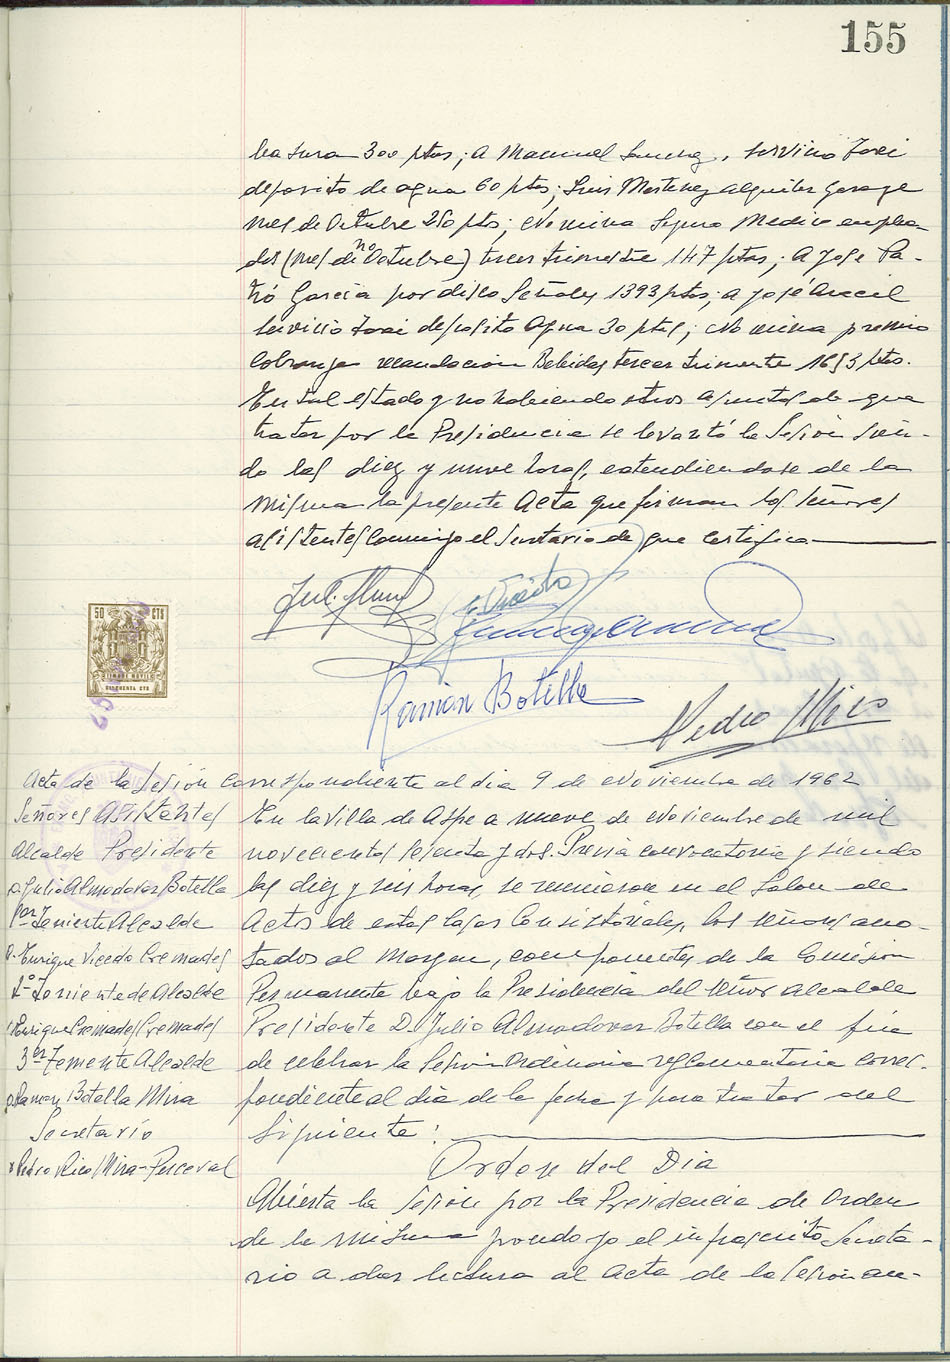 155
basura 300 ptas; a Manuel Sanchez, servicio
deposito de agua 60 ptas; Luis Martinez alquiler garage
mes de Octubre 250 ptas; Nomina Seguro Medico emplea-
dos (mes de Octubre) tercer trimestre 147 ptas; a Jose Pa-
García por disco Señales 1393 ptas; a José
servicio deposito Agua 30 ptas; Nomina premio
Cobranza recaudacion Bebidas tercer trimestre ptas.
En tal estado y no habiendo otros asuntos de que
tratar por la Presidencia se levantó la Sesión sien-
do las diez y nueve horas, extendiendose de la
misma la presente Acta que firman los Señores
asistentes conmigo el Secretario de que certifico
50 CTS
Ramón Botella
Pedro Rico
Acta de la Sesión correspondiente al dia 9 de Noviembre de 1962
Señores Asistentes
Alcalde Presidente
D. Julio Almodovar Botella
1er Teniente Alcalde
D. Enrique Vicedo Cremades
2º Teniente de Alcalde
D. Enrique Cremades Cremades
3er Teniente Alcalde
D. Ramon Botella Mira
Secretario
D. Pedro Rico Mira-Perceval
En la villa de Aspe a nueve de Noviembre de mil
novecientos sesenta y dos. Previa convocatoria y siendo
las diez y seis horas, se reunieron en el Salon de
Actos de estas Casas Consistoriales, los señores ano-
tados al margen, componentes de la Comisión
Permanente bajo la Presidencia del señor Alcalde
Presidente D. Julio Almodovar Botella con el fin
de celebrar la Sesión Ordinaria reglamentaria corres-
pondiente al dia de la fecha y para tratar del
siguiente:
Orden del Dia
Abierta la Sesión por la Presidencia de Orden
de la misma produjo el infrascrito Secreta-
rio a dar lectura al acta de la Sesión an-